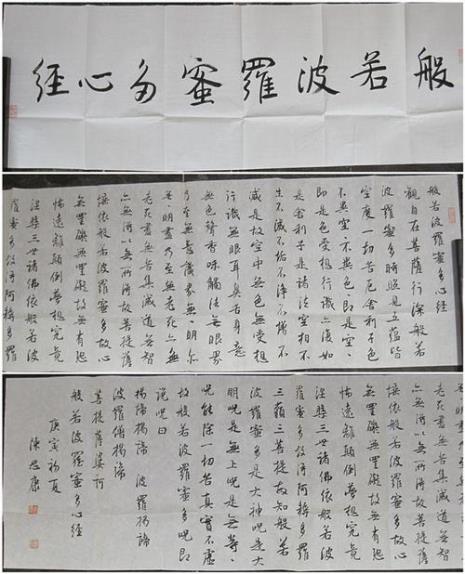 般若波羅蜜多心經
般若波羅蜜多心經
觀自在菩薩行深般若
波羅蜜多時照見五蘊皆
空度一切苦厄舍利子色
不異空〻不異色〻即是空〻
即是色受想行識亦復如
是舍利子是諸法空相不
生不滅不垢不淨不增不
減是故空中無色無受想
行識無眼耳鼻舌身意
無色聲香味觸法無眼界
乃至無意識界無無明亦
無無明盡乃至無老死亦無
老死盡無苦集滅道無智
亦無得以無所得故菩提薩
埵依般若波羅蜜多故心
無罣礙無罣礙故無有恐
怖遠離顛倒夢想究竟
涅槃三世諸佛依般若波
羅蜜多故得阿耨多羅
老死盡無苦集滅道無智
亦無得以無所得故菩提薩
埵依般若波羅蜜多故心
無罣礙無罣礙故無有恐
怖遠離顛倒夢想究竟
涅槃三世諸佛依般若波
羅蜜多故得阿耨多羅
三藐三菩提故知般若
波羅蜜多是大神咒是大
明咒是無上咒是無等〻
咒能除一切苦真實不虛
故說般若波羅蜜多咒即
說咒曰
揭諦揭諦 波羅揭諦
波羅僧揭諦
菩提薩婆訶
般若波羅蜜多心經
庚寅初夏
陳忠康